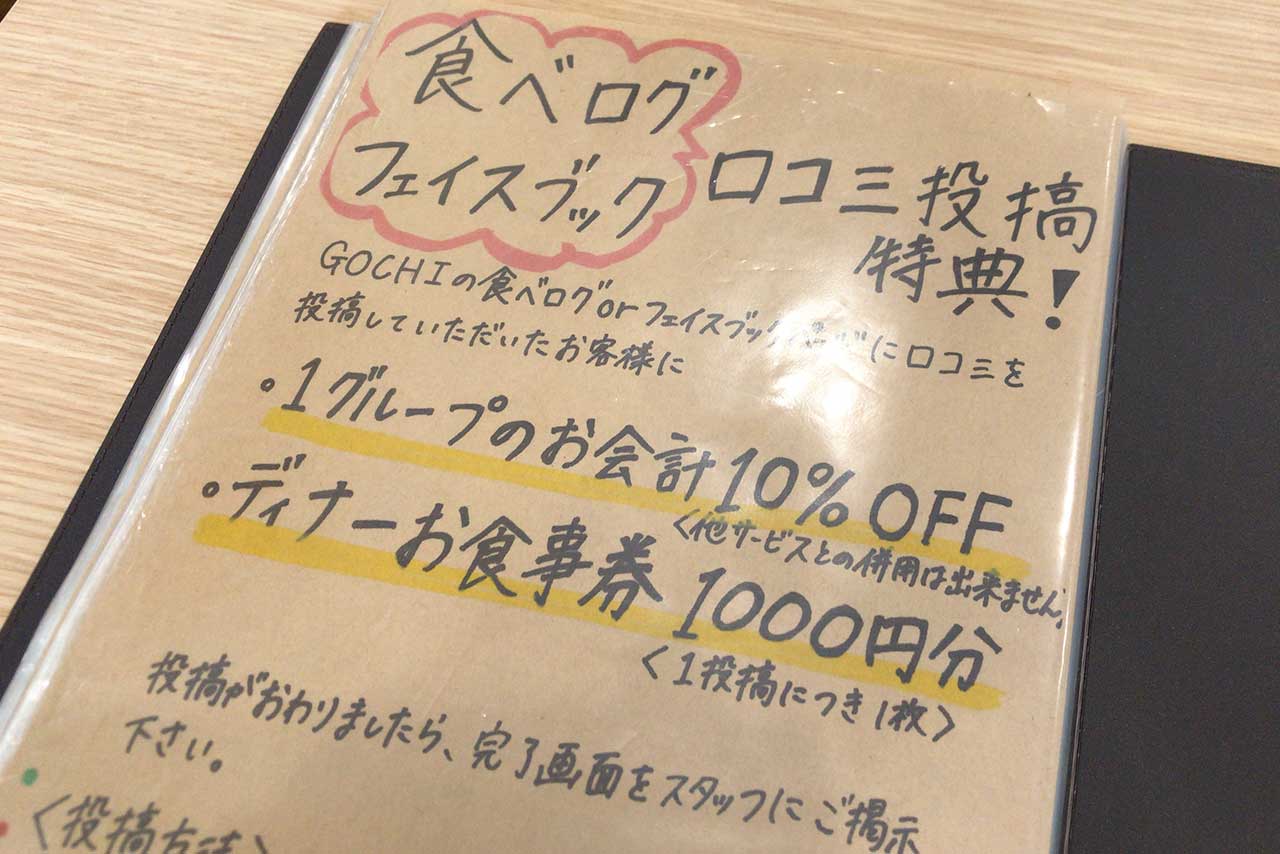 食べログ
フェイスブック
口コミ投稿
特典!
GOCHIの食べログorフェイスブック に口コミを
投稿していただいたお客様に
・1グループのお会計10%OFF
<他サービスとの併用は出来ません。
・ディナーお食事券1000円分
<1投稿につき1枚>
投稿がおわりましたら、完了画面をスタッフにご掲示
下さい。
<投稿方法>